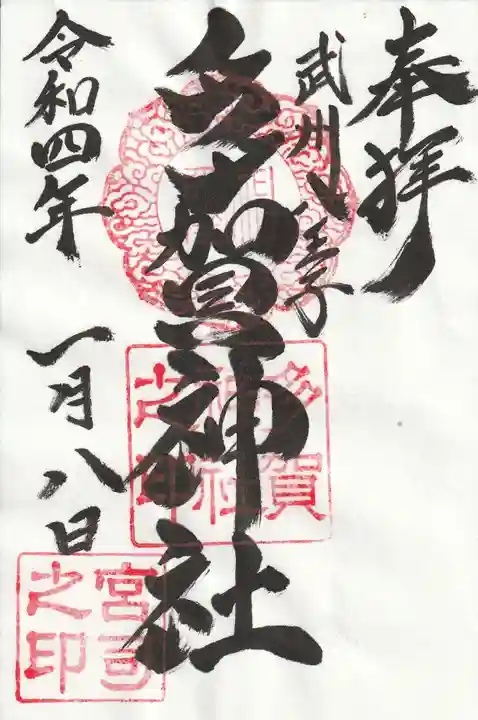 奉拝
武州八王子
多賀神社
令和四年
一月八日
多賀
神社
之印
宮司
之印